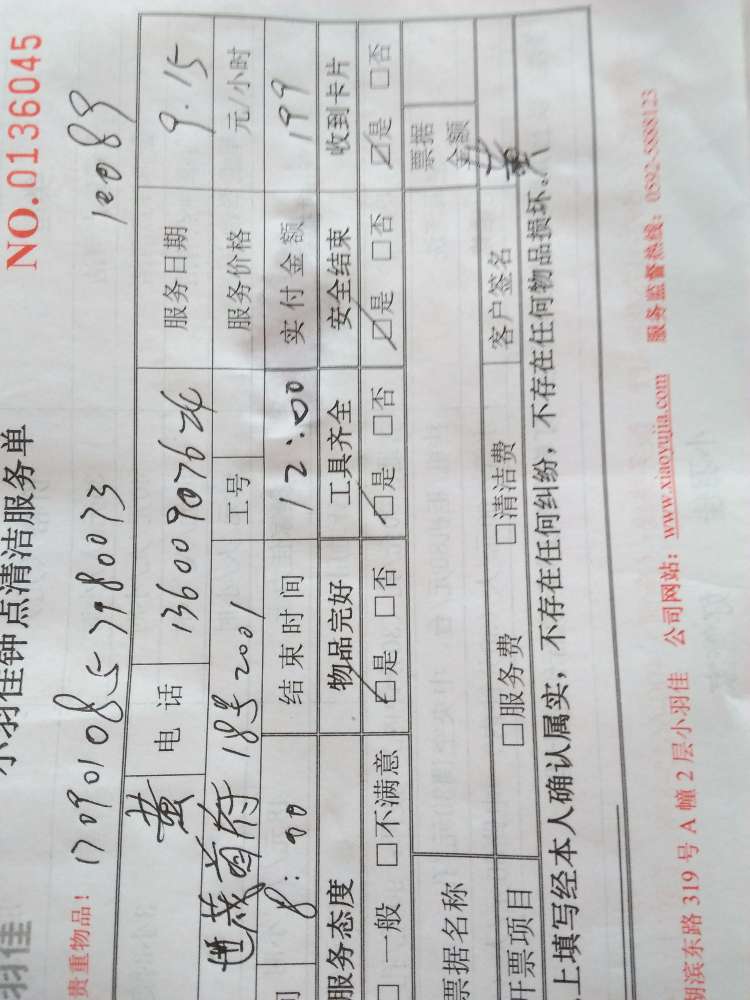 羽佳
小羽佳钟点清洁服务单
NO.0136045
贵重物品！ 17090108557980073 10089
黄 电话 13600907624 服务日期 9.15
世茂首府 18号2001 工号 服务价格 元/小时
8:00 结束时间 12:00 实付金额 199
服务态度 物品完好 工具齐全 安全结束 收到卡片
□一般 □不满意 ☑是 □否 ☑是 □否 ☑是 □否 ☑是 □否
票据名称 票据金额
开票项目 □服务费 □清洁费 客户签名 黄
上填写经本人确认属实，不存在任何纠纷，不存在任何物品损坏。
湖滨东路319号A幢2层小羽佳 公司网站：www.xiaoyujia.com 服务监督热线：0592-5888123